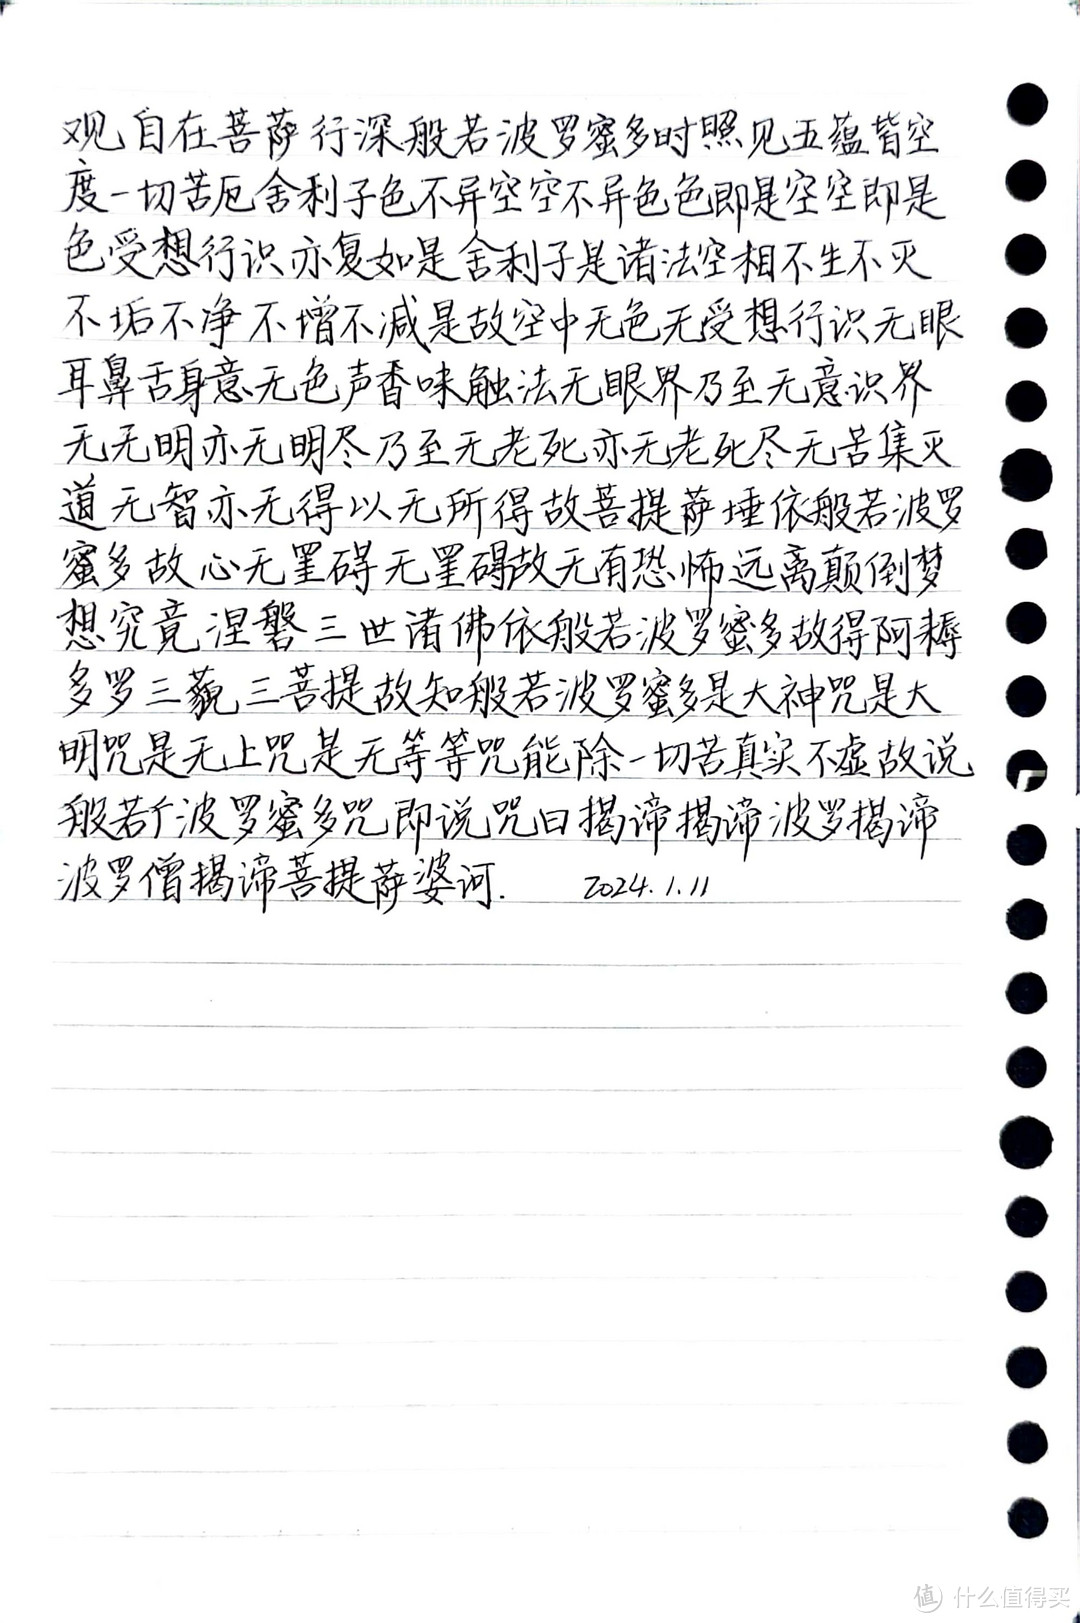 观自在菩萨行深般若波罗蜜多时照见五蕴皆空
度一切苦厄舍利子色不异空空不异色色即是空空即是
色受想行识亦复如是舍利子是诸法空相不生不灭
不垢不净不增不减是故空中无色无受想行识无眼
耳鼻舌身意无色声香味触法无眼界乃至无意识界
无无明亦无明尽乃至无老死亦无老死尽无苦集灭
道无智亦无得以无所得故菩提萨埵依般若波罗
蜜多故心无罣碍无罣碍故无有恐怖远离颠倒梦
想究竟涅磐三世诸佛依般若波罗蜜多故得阿耨
多罗三藐三菩提故知般若波罗蜜多是大神咒是大
明咒是无上咒是无等等咒能除一切苦真实不虚故说
般若波罗蜜多咒即说咒曰揭谛揭谛波罗揭谛
波罗僧揭谛菩提萨婆诃. 2024.1.11
值 什么值得买